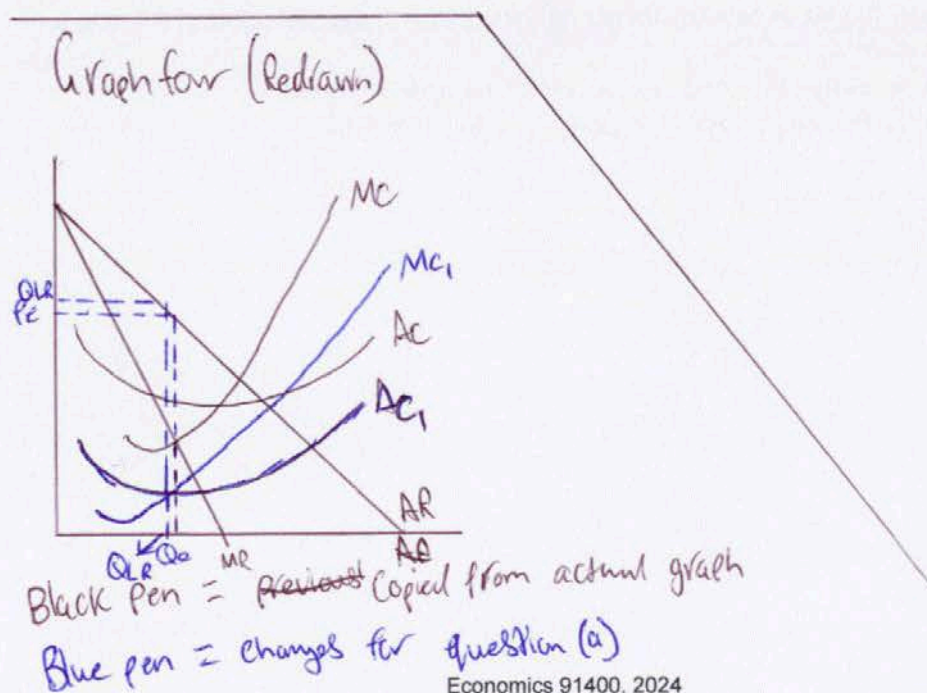 Graph four (Redrawn)
MC
MC₁
QLR
Pe
AC
AC₁
AR
AR
QLR Qe MR
Black Pen = previous Copied from actual graph
Blue pen = changes for question (a)
Economics 91400, 2024